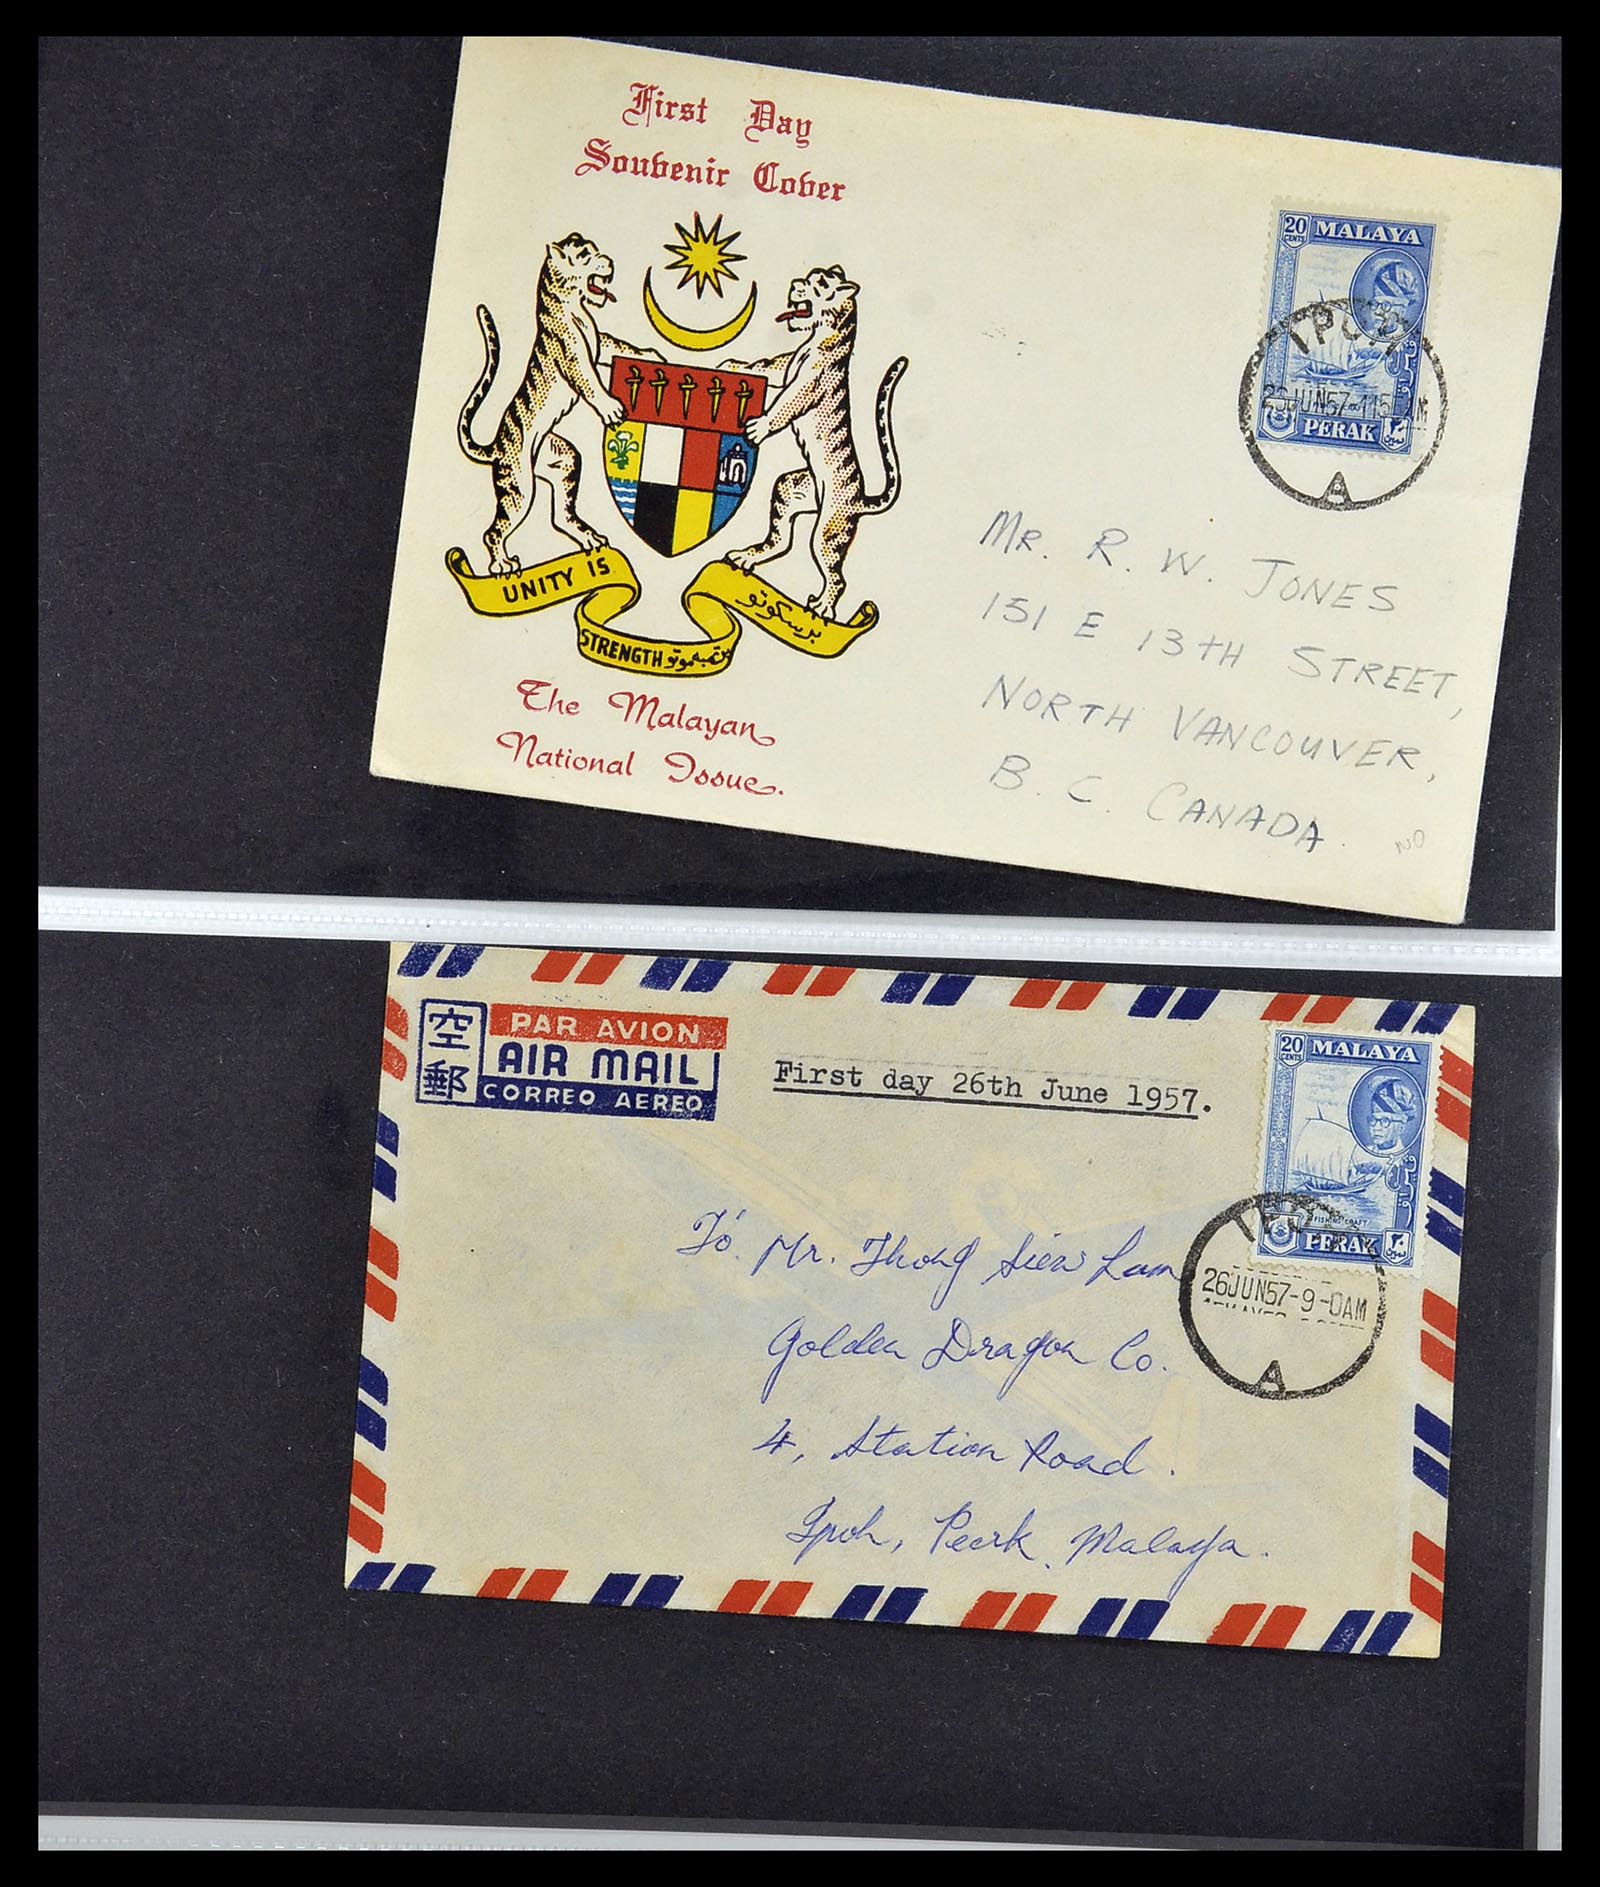 First Day
Souvenir Cover
UNITY IS
STRENGTH
برسكوتو
The Malayan
National Issue.
20 CENTS MALAYA
PERAK
IPOH
JUN57
A
MR. R. W. JONES
151 E 13TH STREET,
NORTH VANCOUVER,
B. C. CANADA.
NO
空郵
PAR AVION
AIR MAIL
CORREO AEREO
First day 26th June 1957.
20 CENTS MALAYA
FISHING CRAFT
PERAK
IPOH
26JUN57-9-0AM
A
To. Mr. Thong Siew Lam
Golden Dragon Co.
4, Station Road.
Ipoh, Perk. Malaya.